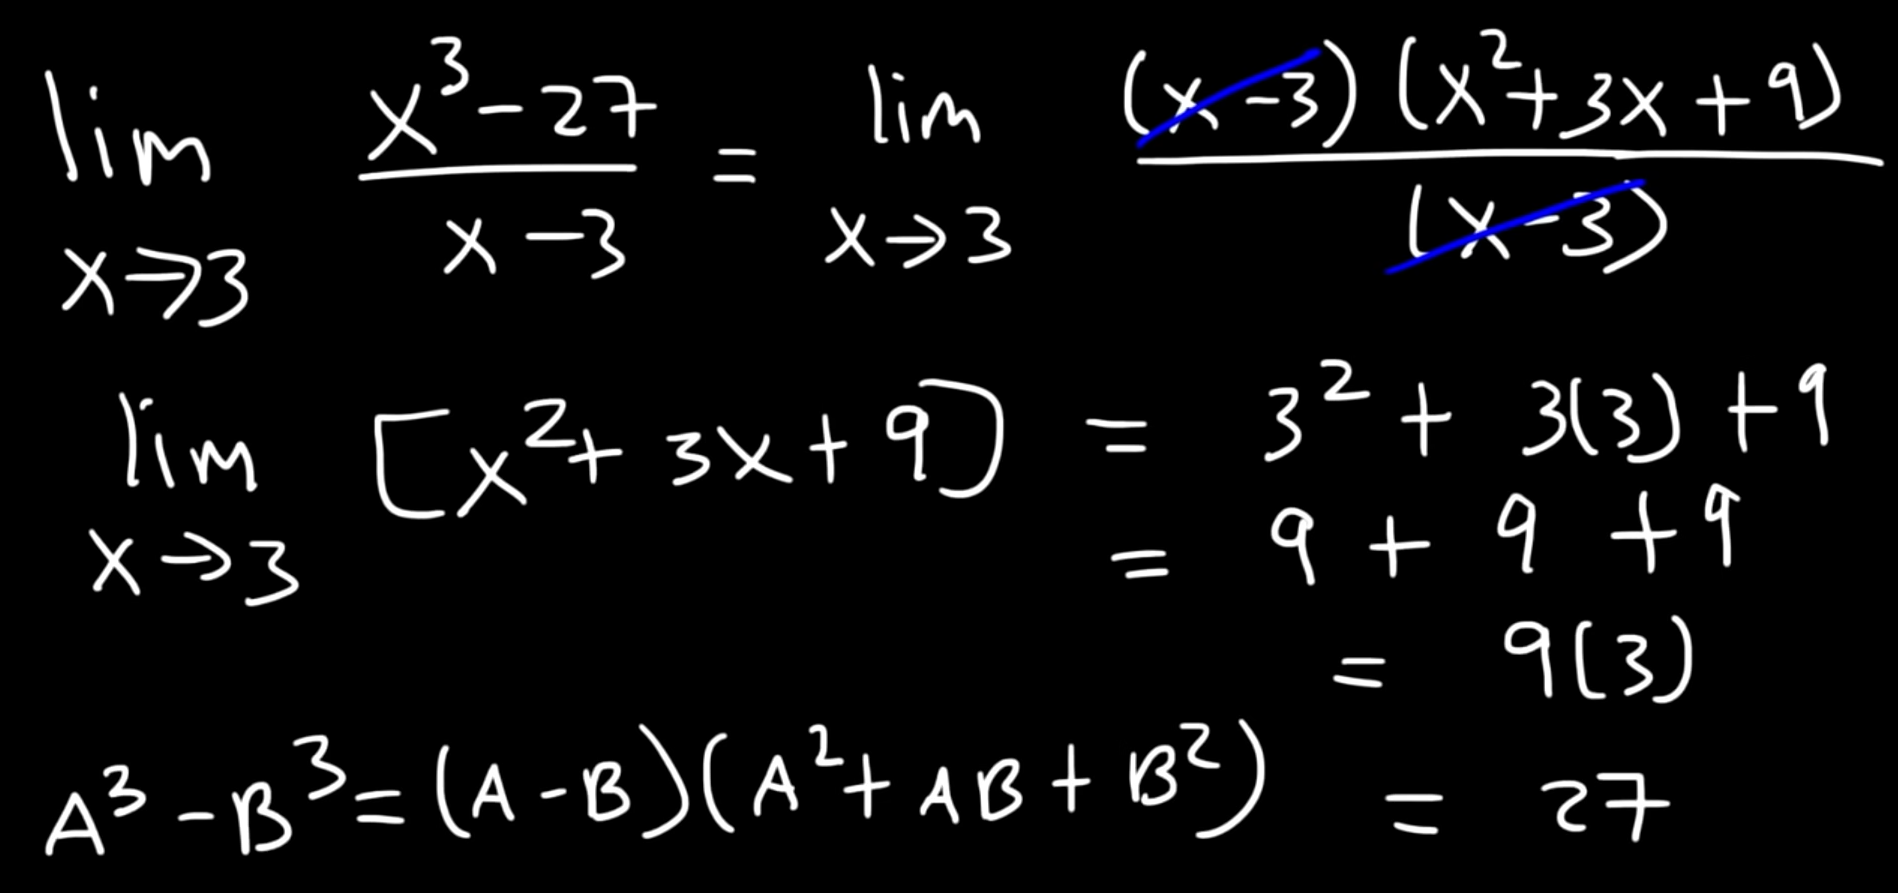 lim x→3 (x³-27)/(x-3) = lim x→3 ((x-3)(x²+3x+9))/(x-3)
lim x→3 [x²+3x+9] = 3²+3(3)+9
= 9+9+9
= 9(3)
A³-B³=(A-B)(A²+AB+B²)
= 27